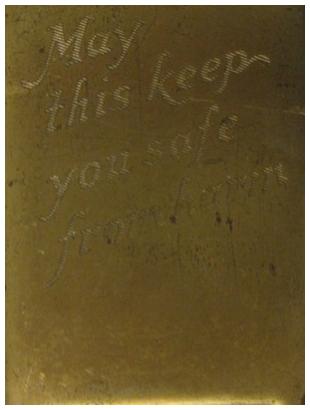 May
this keep
you safe
from harm